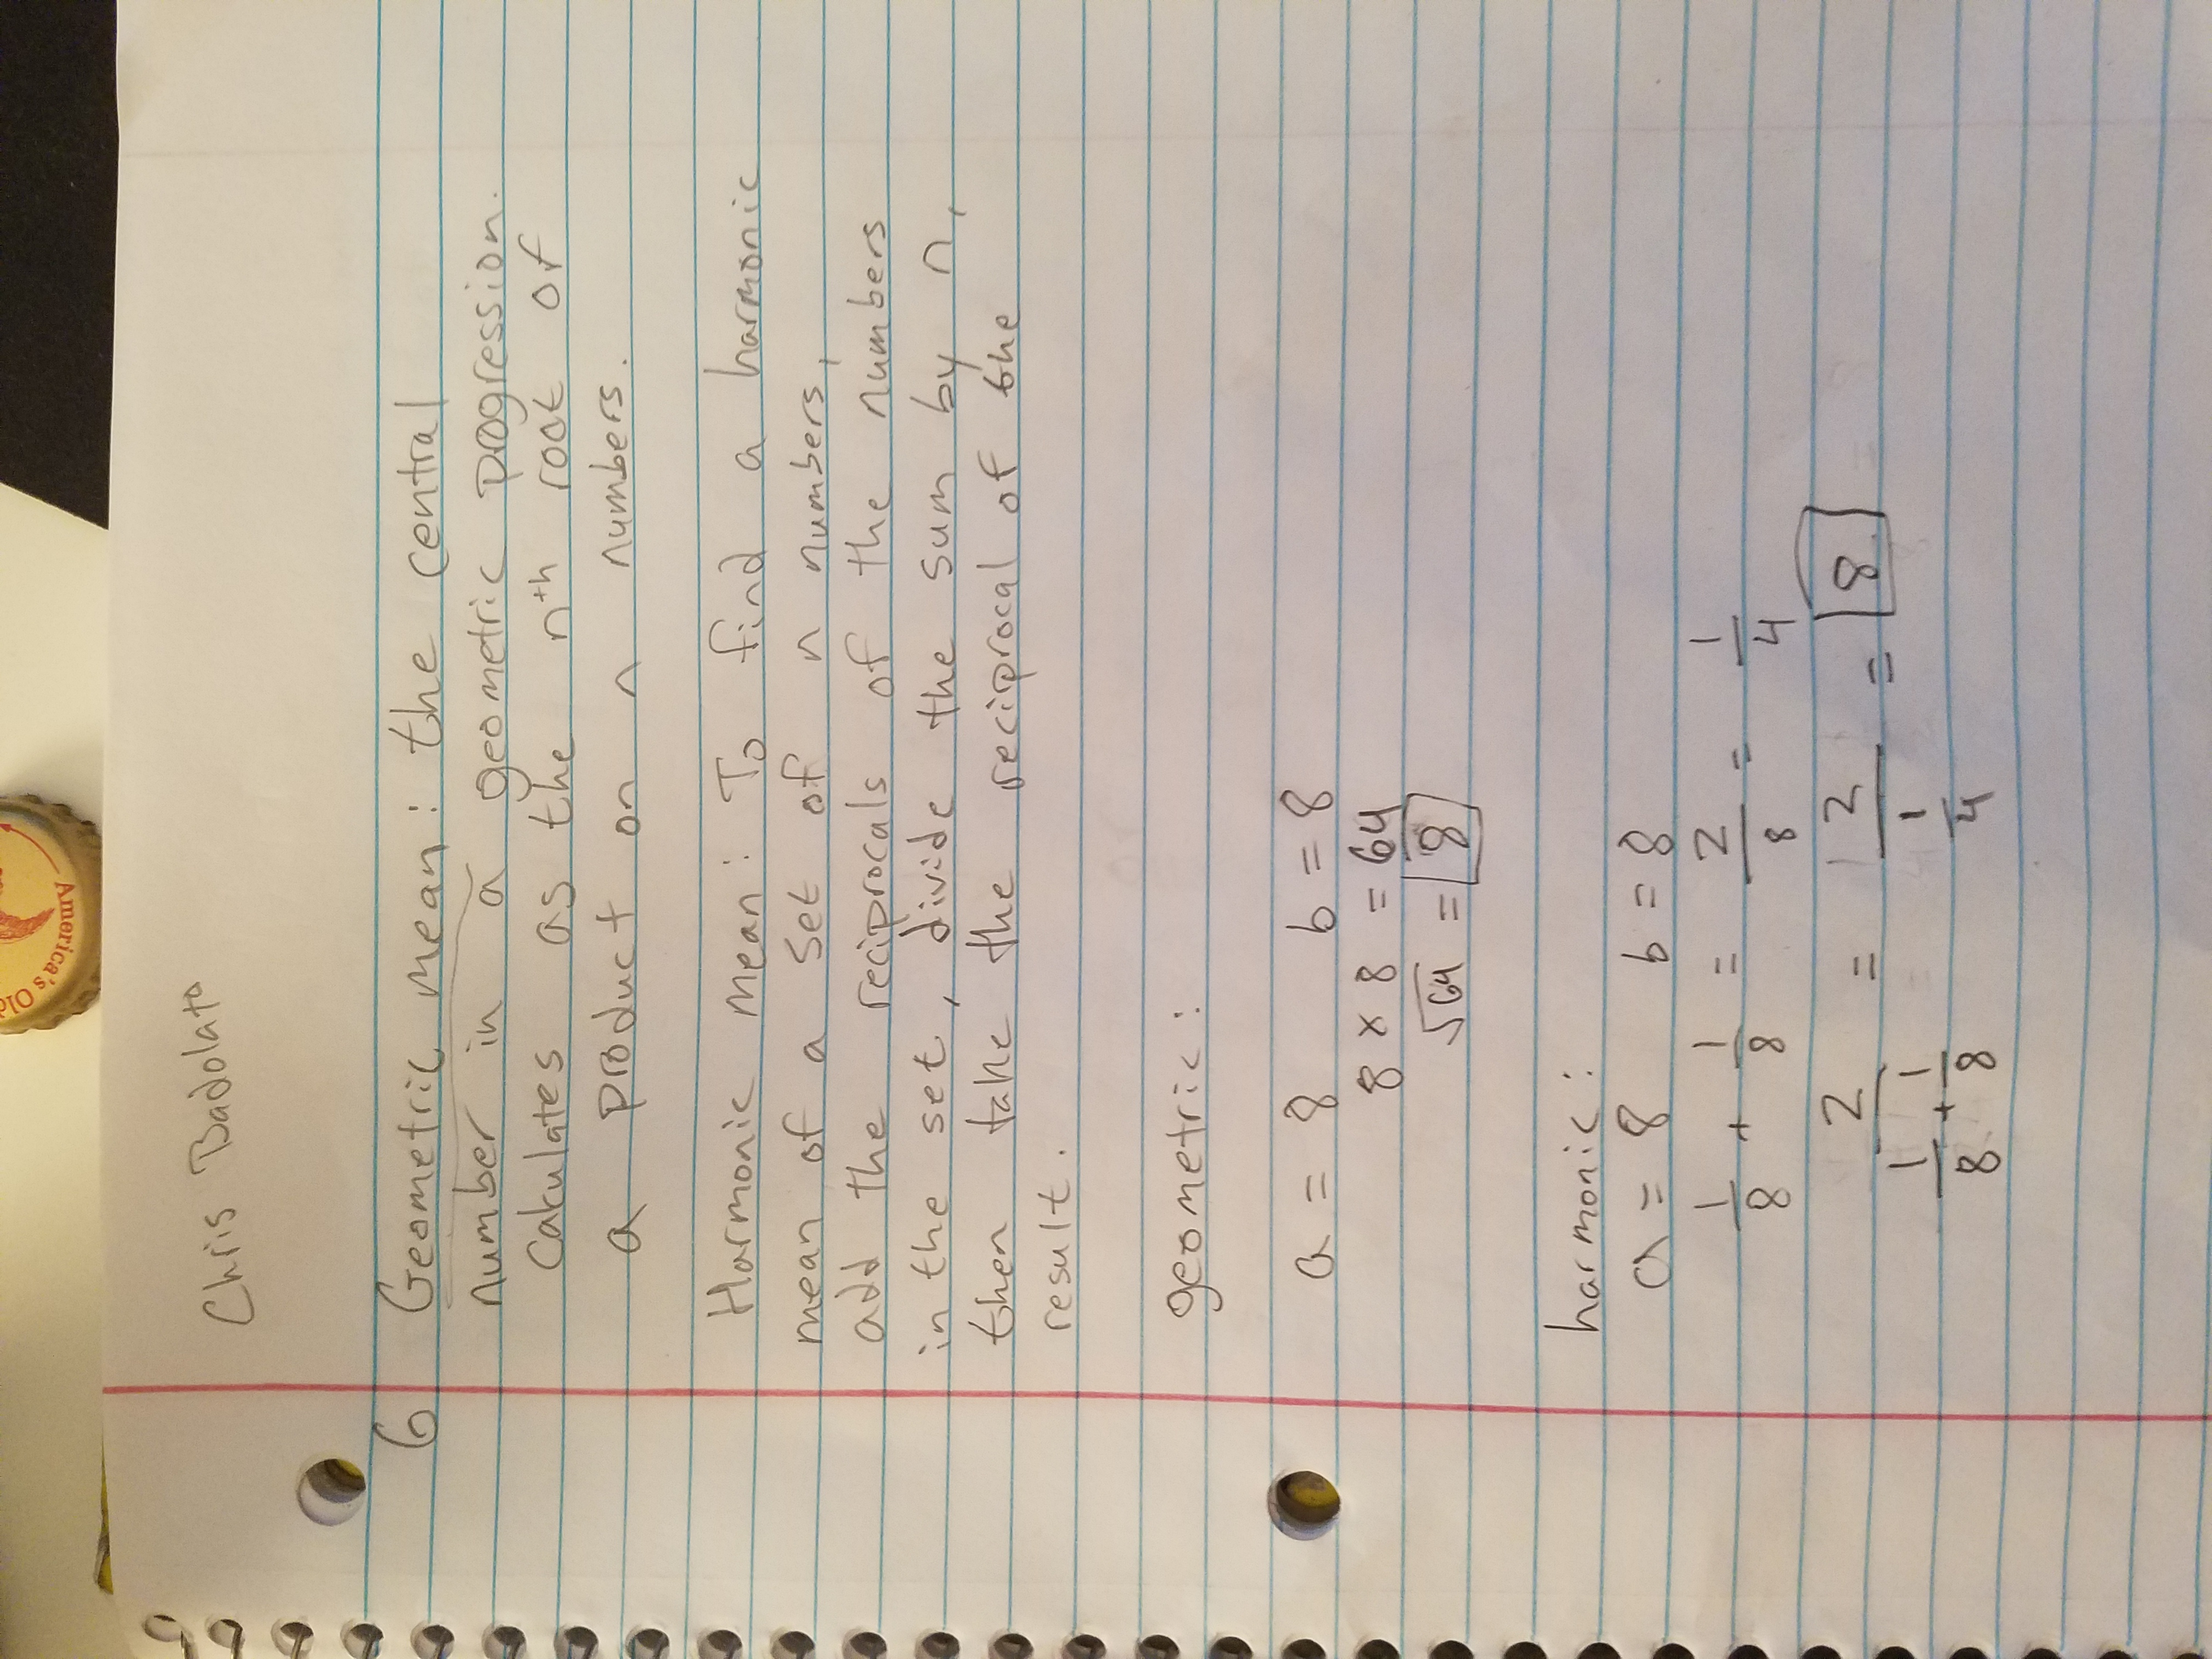 America's Old
Chris Badolato
6 Geometric mean: the central
number in a geometric progression.
Calculates as the nth root of
a product on n numbers.
Harmonic mean: To find a harmonic
mean of a set of n numbers,
add the reciprocals of the numbers
in the set, divide the sum by n,
then take the reciprocal of the
result.
geometric:
a = 8 b = 8
8 × 8 = 64
√64 = 8
harmonic:
a = 8 b = 8
1/8 + 1/8 = 2/8 = 1/4
2/(1/8 + 1/8) = 2/(1/4) = 8